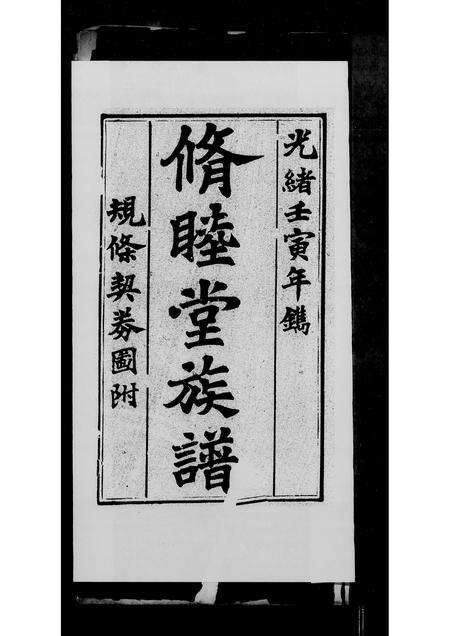 光緒壬寅年鐫
脩睦堂族譜
規條契券圖附